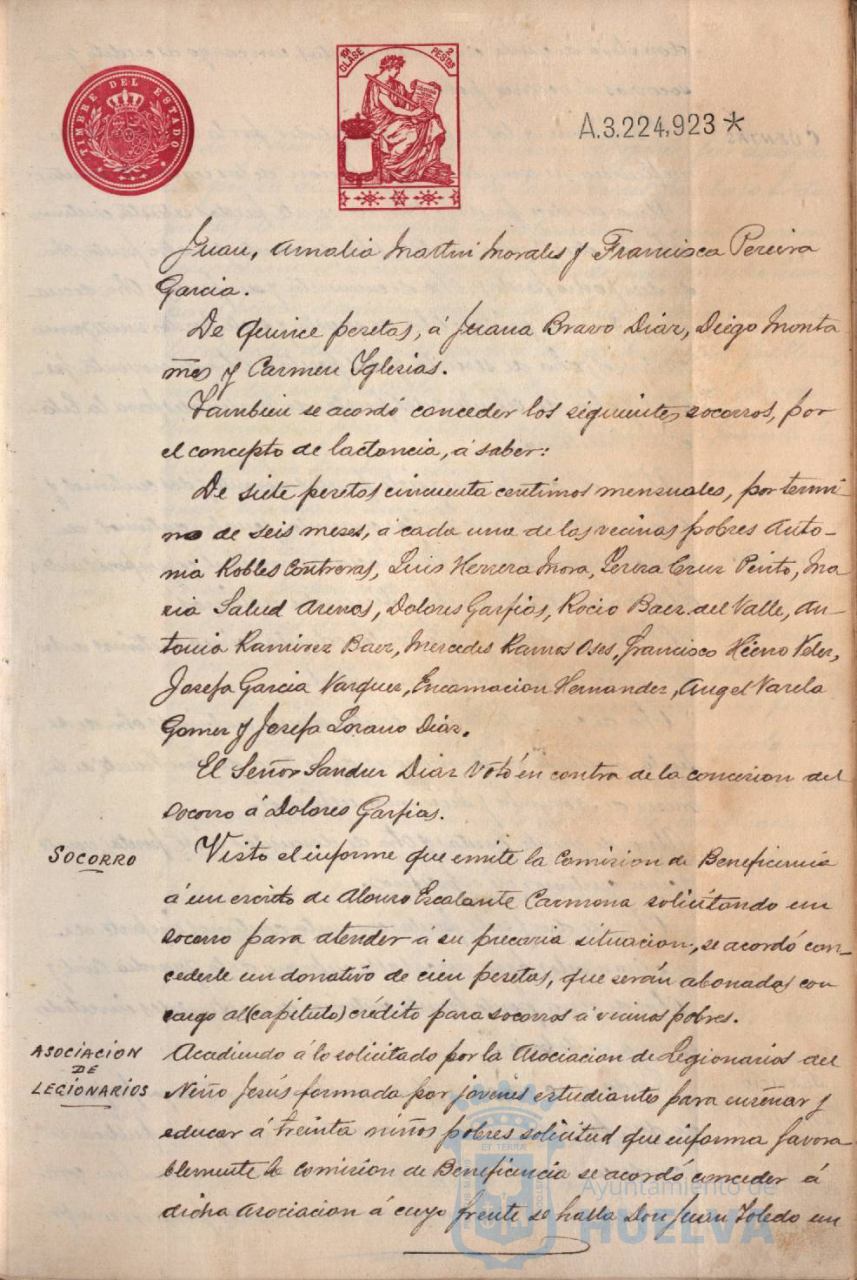 TIMBRE DEL ESTADO
10ª CLASE
2 PESETAS
A.3.224,923*
Juan, Amalia Martin Morales y Francisca Pereira
Garcia.
De quince pesetas, á Juana Bravo Diaz, Diego Monta
ñes y Carmen Yglesias.
Tambien se acordó conceder los siguientes socorros, por
el concepto de lactancia, á saber:
De siete pesetas cincuenta centimos mensuales, por termi
no de seis meses, á cada una de las vecinas pobres Anto-
nia Robles Contreras, Luis Herrera Mora, Teresa Cruz Pinto, Ma
ria Salud Arenas, Dolores Garfias, Rocio Baez del Valle, An-
tonia Ramirez Baez, Mercedes Ramos Oses, Francisco Hierro Velez,
Josefa Garcia Vazquez, Encarnacion Hernandez, Angel Varela
Gomez y Josefa Lozano Diaz.
El Señor Sanchez Diaz votó en contra de la concesion del
socorro á Dolores Garfias.
SOCORRO
Visto el informe que emite la Comision de Beneficencia
á un escrito de Alonso Escalante Carmona solicitando un
socorro para atender á su precaria situacion, se acordó con-
cederle un donativo de cien pesetas, que serán abonadas con
cargo al (capitulo) crédito para socorros á vecinos pobres.
ASOCIACION
DE
LEGIONARIOS
Accediendo á lo solicitado por la Asociacion de Legionarios del
Niño Jesús formada por jovenes estudiantes para enseñar y
educar á treinta niños pobres solicitud que informa favora
blemente la Comision de Beneficencia se acordó conceder á
dicha Asociacion á cuyo frente se halla Don Juan Toledo un
Ayuntamiento de
HUELVA